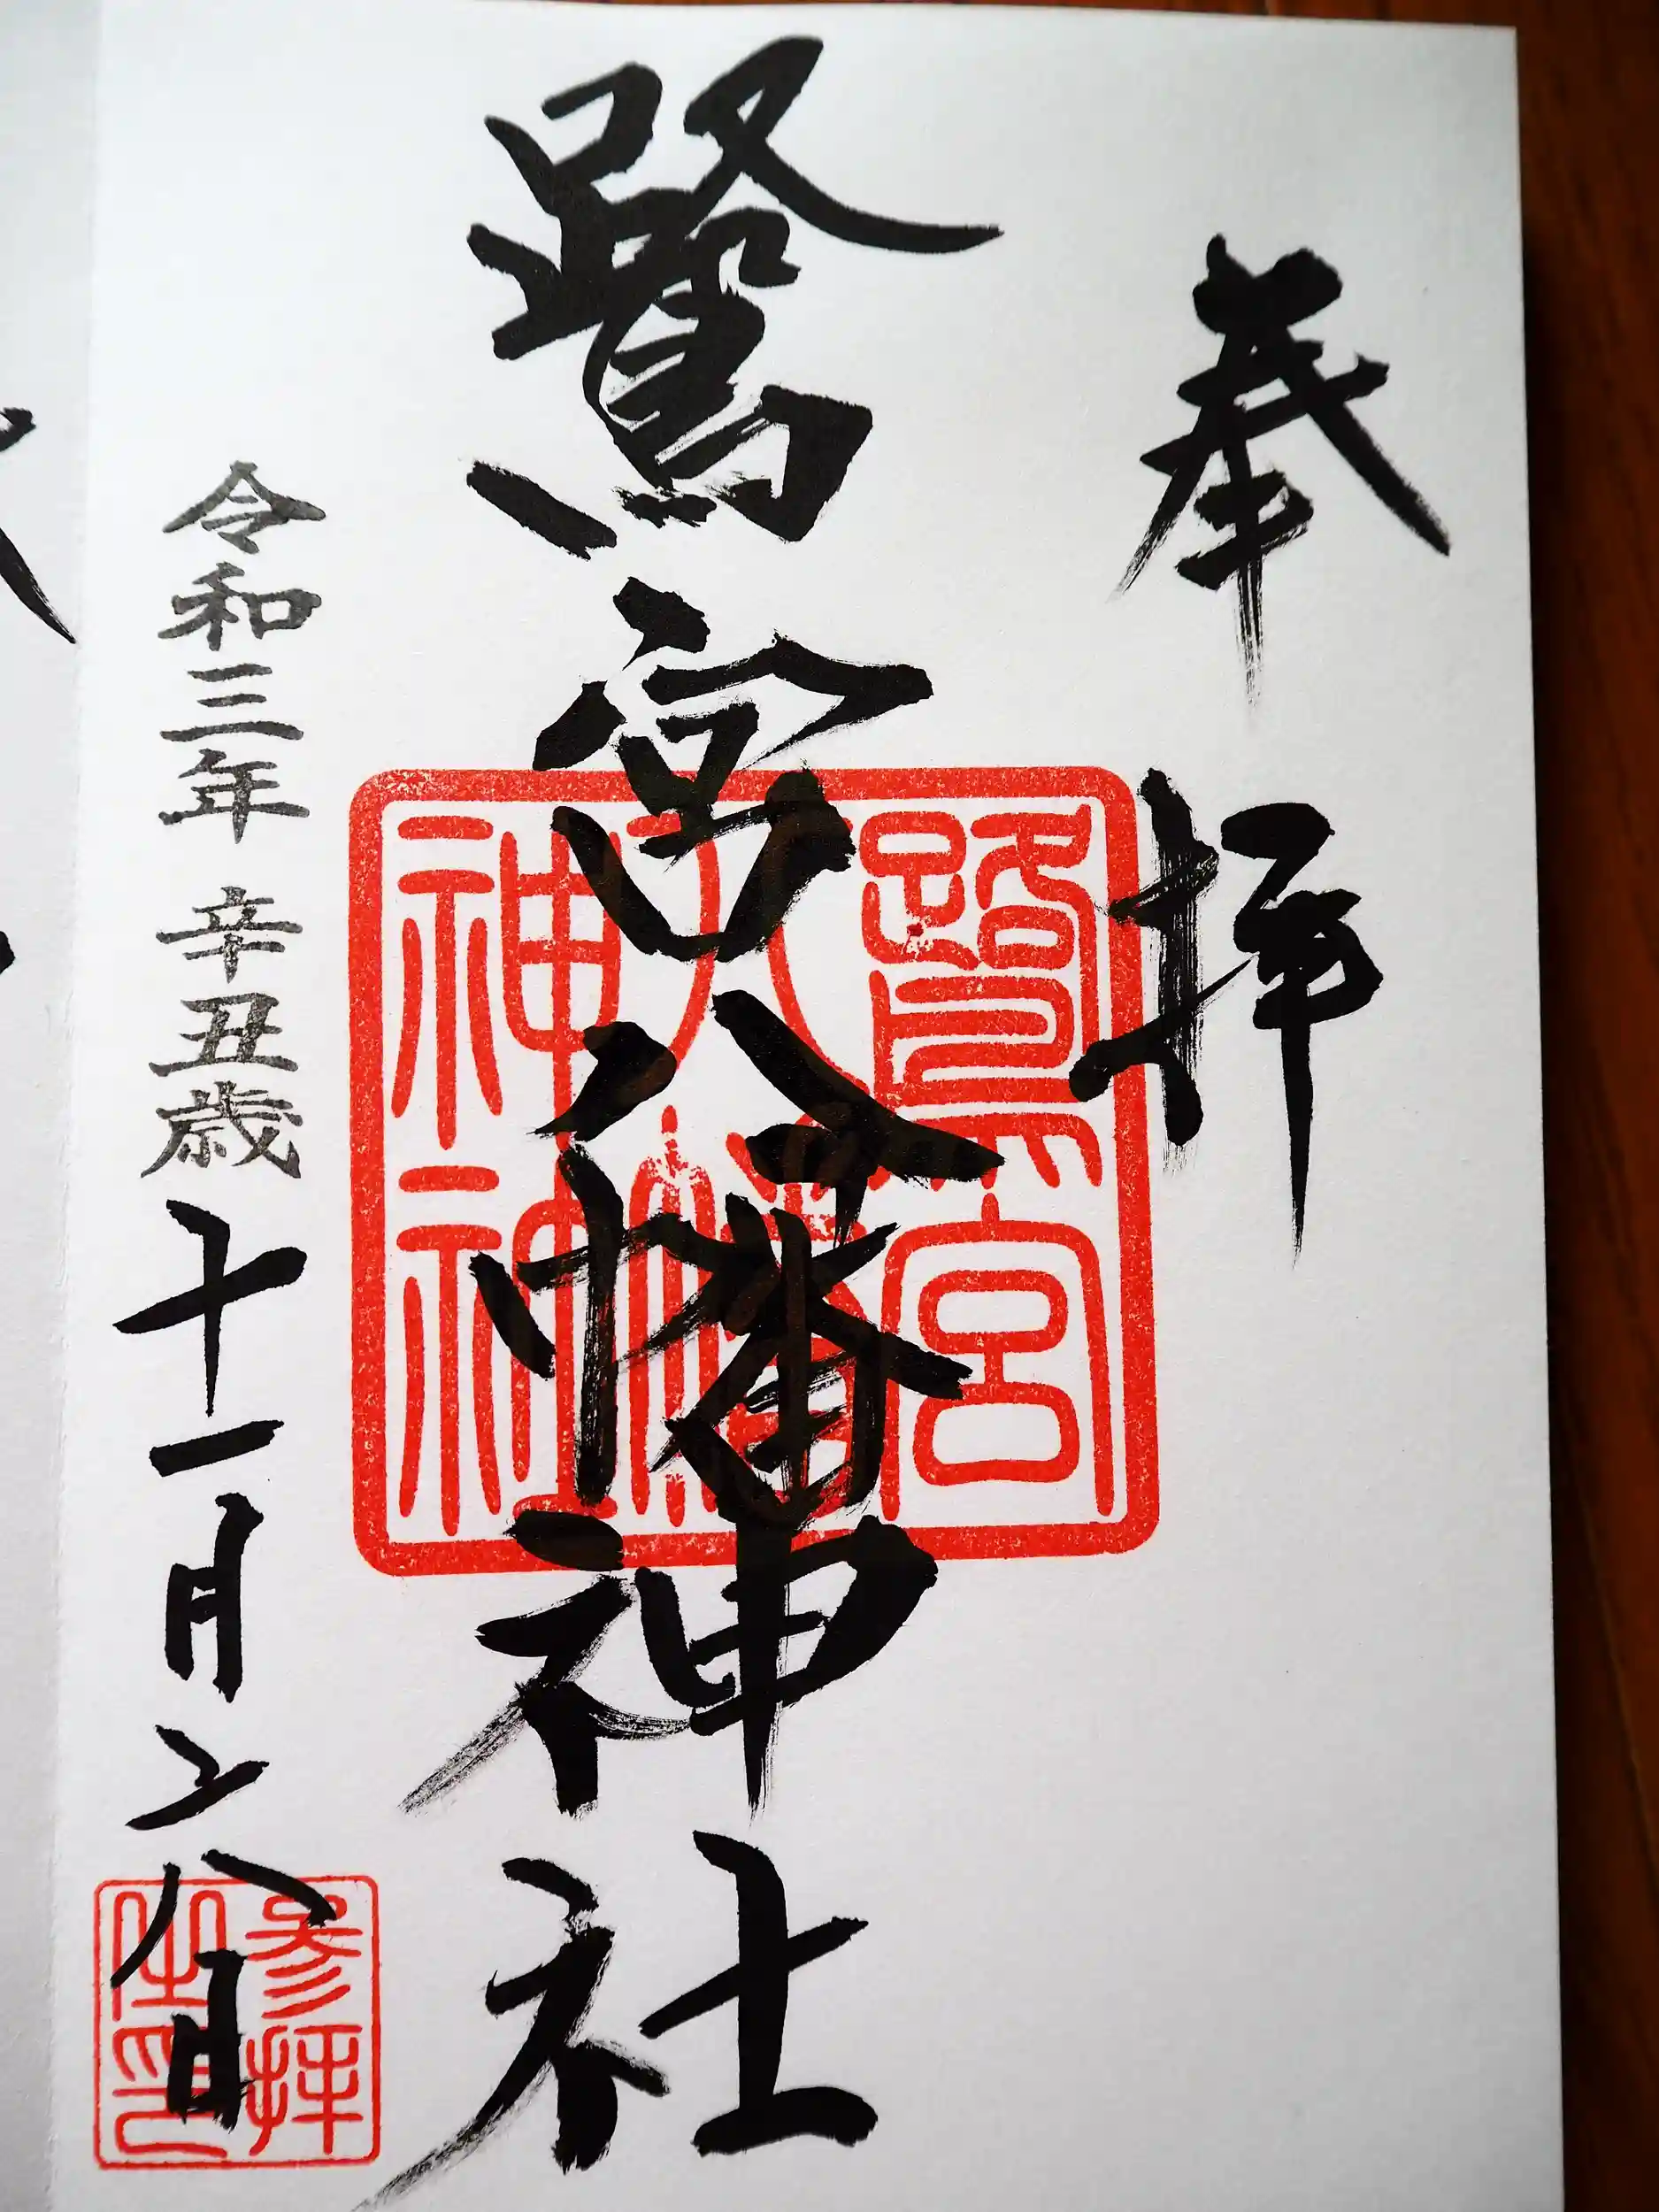 奉拝
鷺宮八幡神社
令和三年 辛丑歳 十一月二八日
鷺宮
八幡
神社
参拝